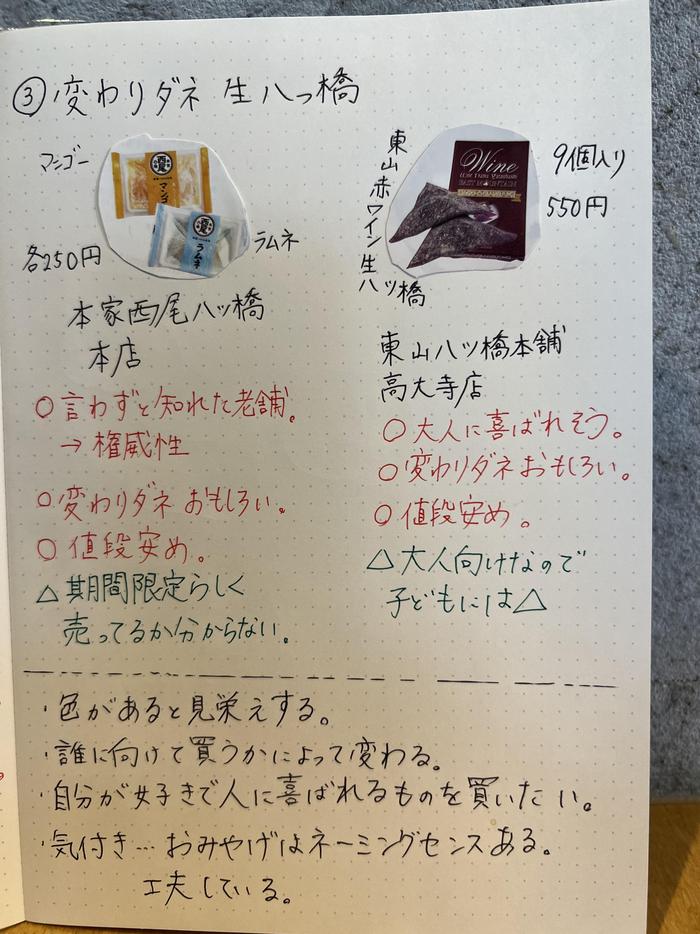 ③変わりダネ 生八つ橋
マンゴー
マンゴ
ラムネ
ラムネ
各250円
本家西尾八ッ橋
本店
○言わずと知れた老舗。
→権威性
○変わりダネ おもしろい。
○値段安め。
△期間限定らしく
売ってるか分からない。
東山赤ワイン生
八ッ橋
Wine
9個入り
550円
東山八ッ橋本舗
高大寺店
○大人に喜ばれそう。
○変わりダネおもしろい。
○値段安め。
△大人向けなので
子どもには△
・色があると見栄えする。
・誰に向けて買うかによって変わる。
・自分が好きで人に喜ばれるものを買いたい。
・気付き…おみやげはネーミングセンスある。
工夫している。